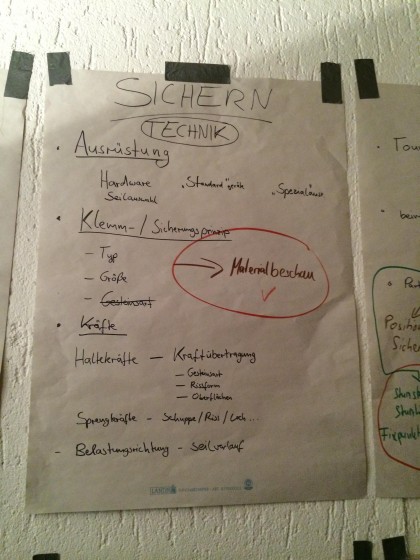 SICHERN
TECHNIK
• Ausrüstung
Hardware "Standard"geräte "Spezialität
Seilauswahl
• Klemm-/Sicherungsprinzip
- Typ
- Größe
- Gesteinsart
→ Materialbeschau ✓
• Kräfte
Haltekräfte — Kraftübertragung
- Gesteinsart
- Rissform
- Oberflächen
Sprengkräfte - Schuppe/Riss/Loch...
- Belastungsrichtung - Seilverlauf
Tou
Positio
Siche
Fixpunkt